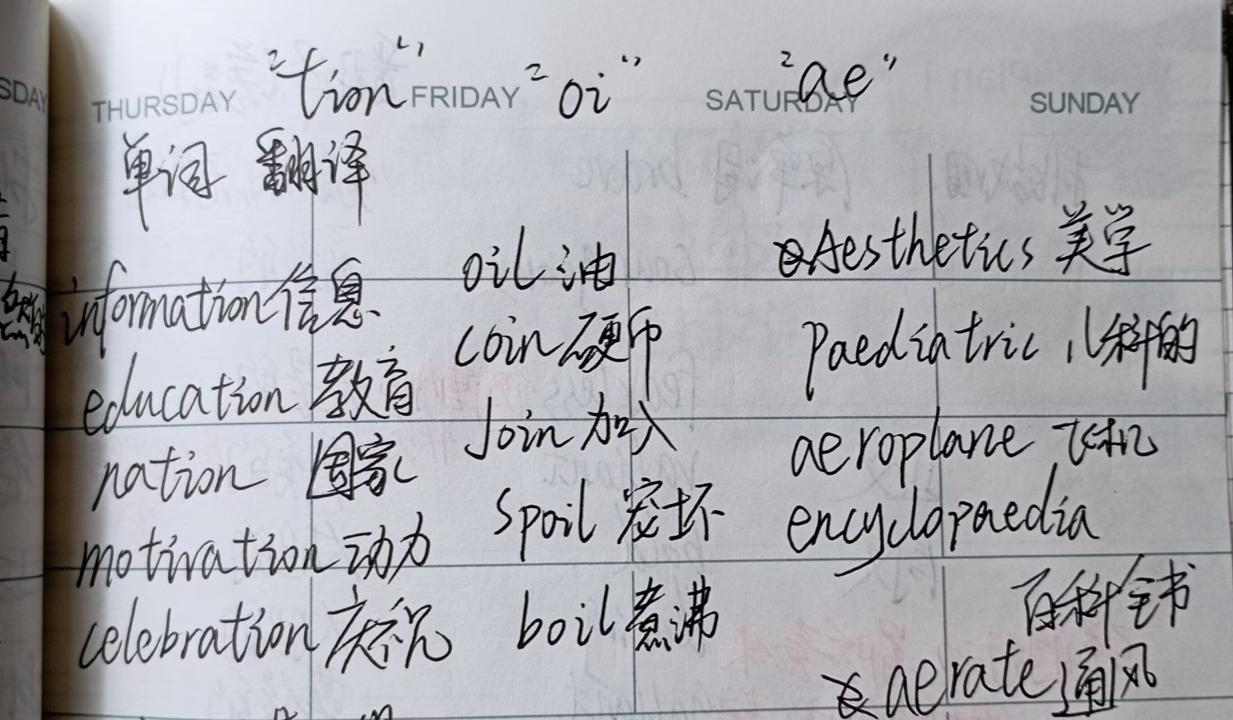 "tion" "oi" "ae"
SDAY THURSDAY FRIDAY SATURDAY SUNDAY
单词 翻译
information 信息
education 教育
nation 国家
motivation 动力
celebration 庆祝
oil 油
coin 硬币
Join 加入
spoil 宠坏
boil 煮沸
Aesthetics 美学
paediatric 儿科的
aeroplane 飞机
encyclopaedia
百科全书
aerate 通风